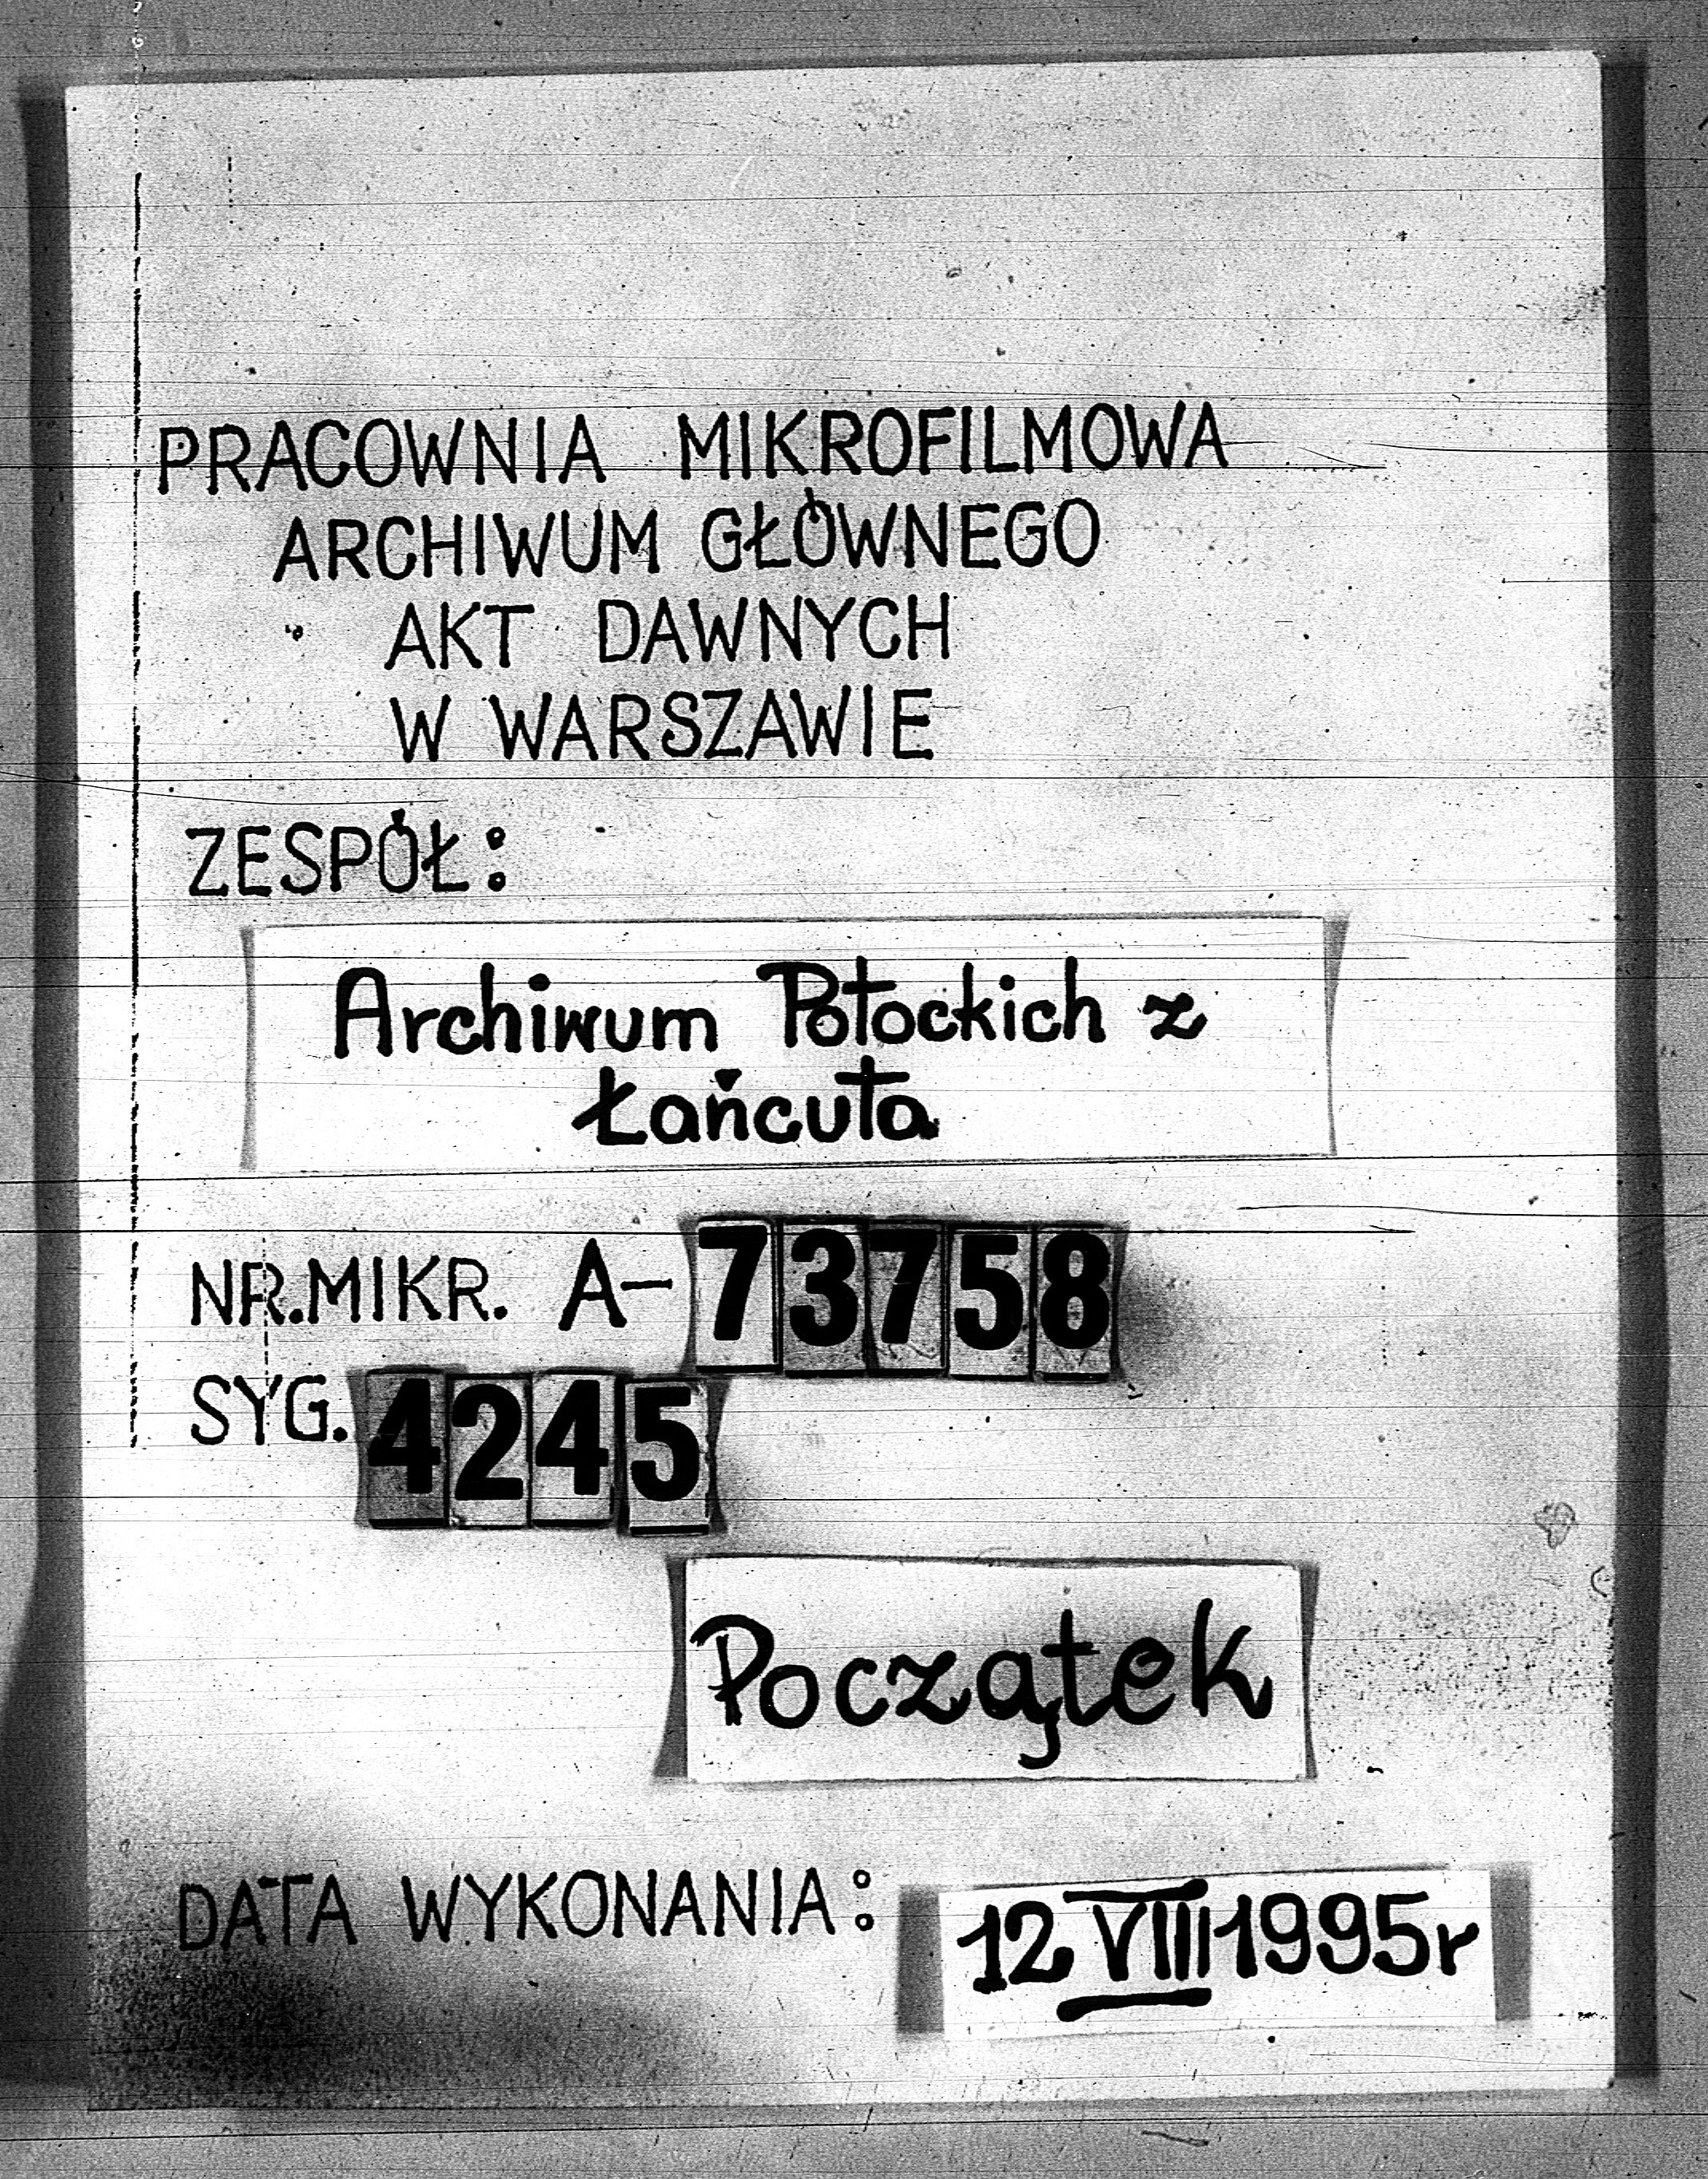 PRACOWNIA MIKROFILMOWA
ARCHIWUM GŁÓWNEGO
AKT DAWNYCH
W WARSZAWIE
ZESPÓŁ:
Archiwum Potockich z
Łańcuta
NR.MIKR. A-73758
SYG. 4245
Początek
DATA WYKONANIA: 12 VIII 1995r